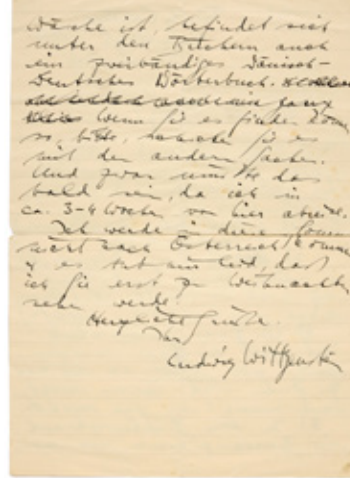 Wäsche ist, befindet sich
unter den Büchern auch
ein zweibändiges Dänisch-
Deutsches Wörterbuch.
Wenn Sie es finden können
so, bitte, schicken Sie es
mit den andern Sachen.
Und zwar müsste das
bald sein, da ich in
ca. 3-4 Wochen von hier abreise.
Ich werde in diesem Sommer
nicht nach Österreich kommen
& es tut mir leid, daß
ich Sie erst zu Weihnachten
sehen werde.
Herzliche Grüße.
Ihr
Ludwig Wittgenstein